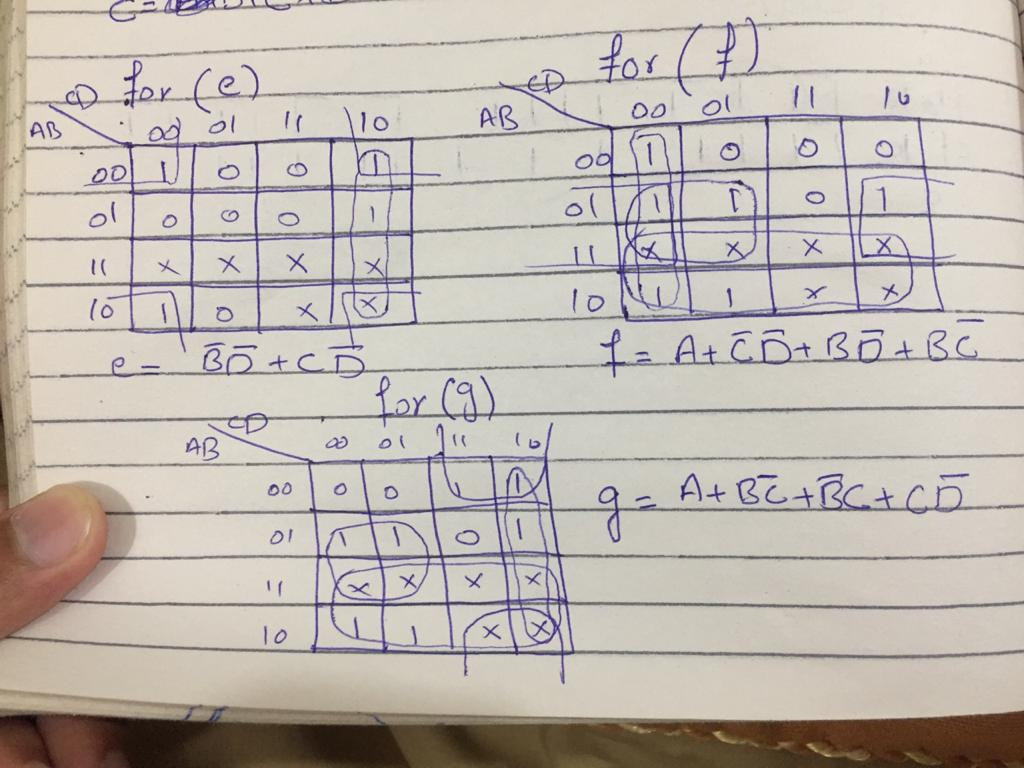 for (e)
CD
AB 00 01 11 10
00 1 0 0 1
01 0 0 0 1
11 x x x x
10 1 0 x x
e = B̅D̅ + CD̅
for (f)
CD
AB 00 01 11 10
00 1 0 0 0
01 1 1 0 1
11 x x x x
10 1 1 x x
f = A + C̅D̅ + BD̅ + BC̅
for (g)
CD
AB 00 01 11 10
00 0 0 1 1
01 1 1 0 1
11 x x x x
10 1 1 x x
g = A + BC̅ + B̅C + CD̅